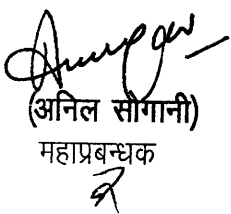 (अनिल सोगानी)
महाप्रबन्धक